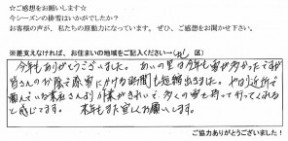 ☆ご感想をお願いします☆
今シーズンの排雪はいかがでしたか？
お客様の声が、私たちの原動力になっています。ぜひ、ご感想をお聞かせ下さい。
※差支えなければ、お住まいの地域をご記入ください→(北 区)
今年もありがとうございました。あいの里は今年も雪が多かったですが
皆さんのお陰で除雪にかける時間も短縮出来ました。やはり近所で
頼んでいる業社さんより作業がきれいで多くの雪を持って行ってくれると
感じてます。 来年もまた宜しくお願いします。
ご協力ありがとうございました！